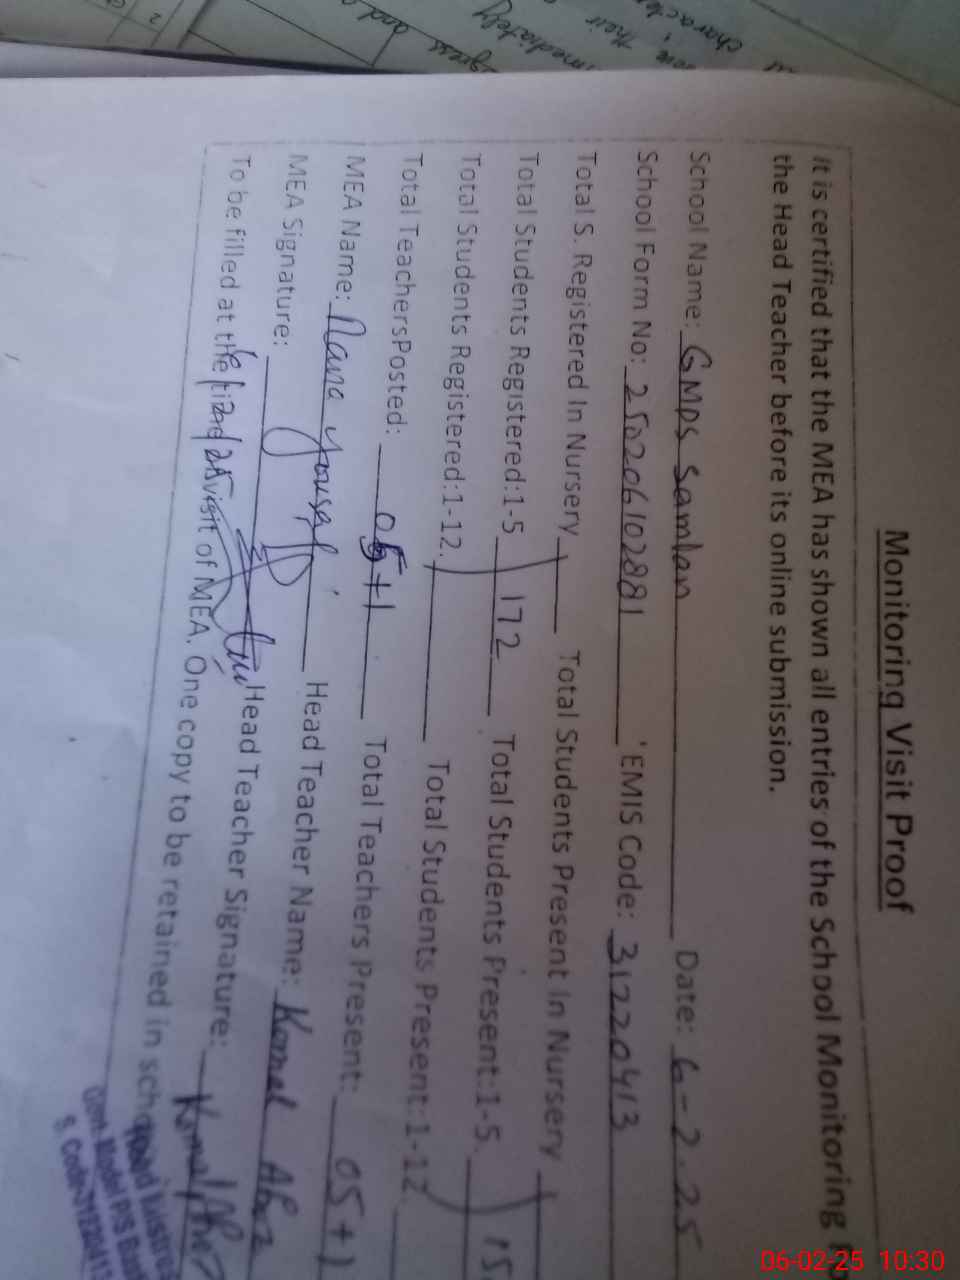 Monitoring Visit Proof
It is certified that the MEA has shown all entries of the School Monitoring
the Head Teacher before its online submission.
School Name: GMPS Samlan Date: 6-2-25
School Form No: 250206102881 EMIS Code: 31220413
Total S. Registered In Nursery Total Students Present In Nursery
Total Students Registered:1-5 172 Total Students Present:1-5 15
Total Students Registered:1-12 Total Students Present:1-12
Total TeachersPosted: 05+1 Total Teachers Present: 05+1
MEA Name: Rana Yousaf Head Teacher Name: Komal
MEA Signature: Head Teacher Signature: Komal
6/2/25
To be filled at the visit of MEA. One copy to be retained in school
Govt. Model P/S
S. Code-31220413
immediately
character
and
06-02-25 10:30